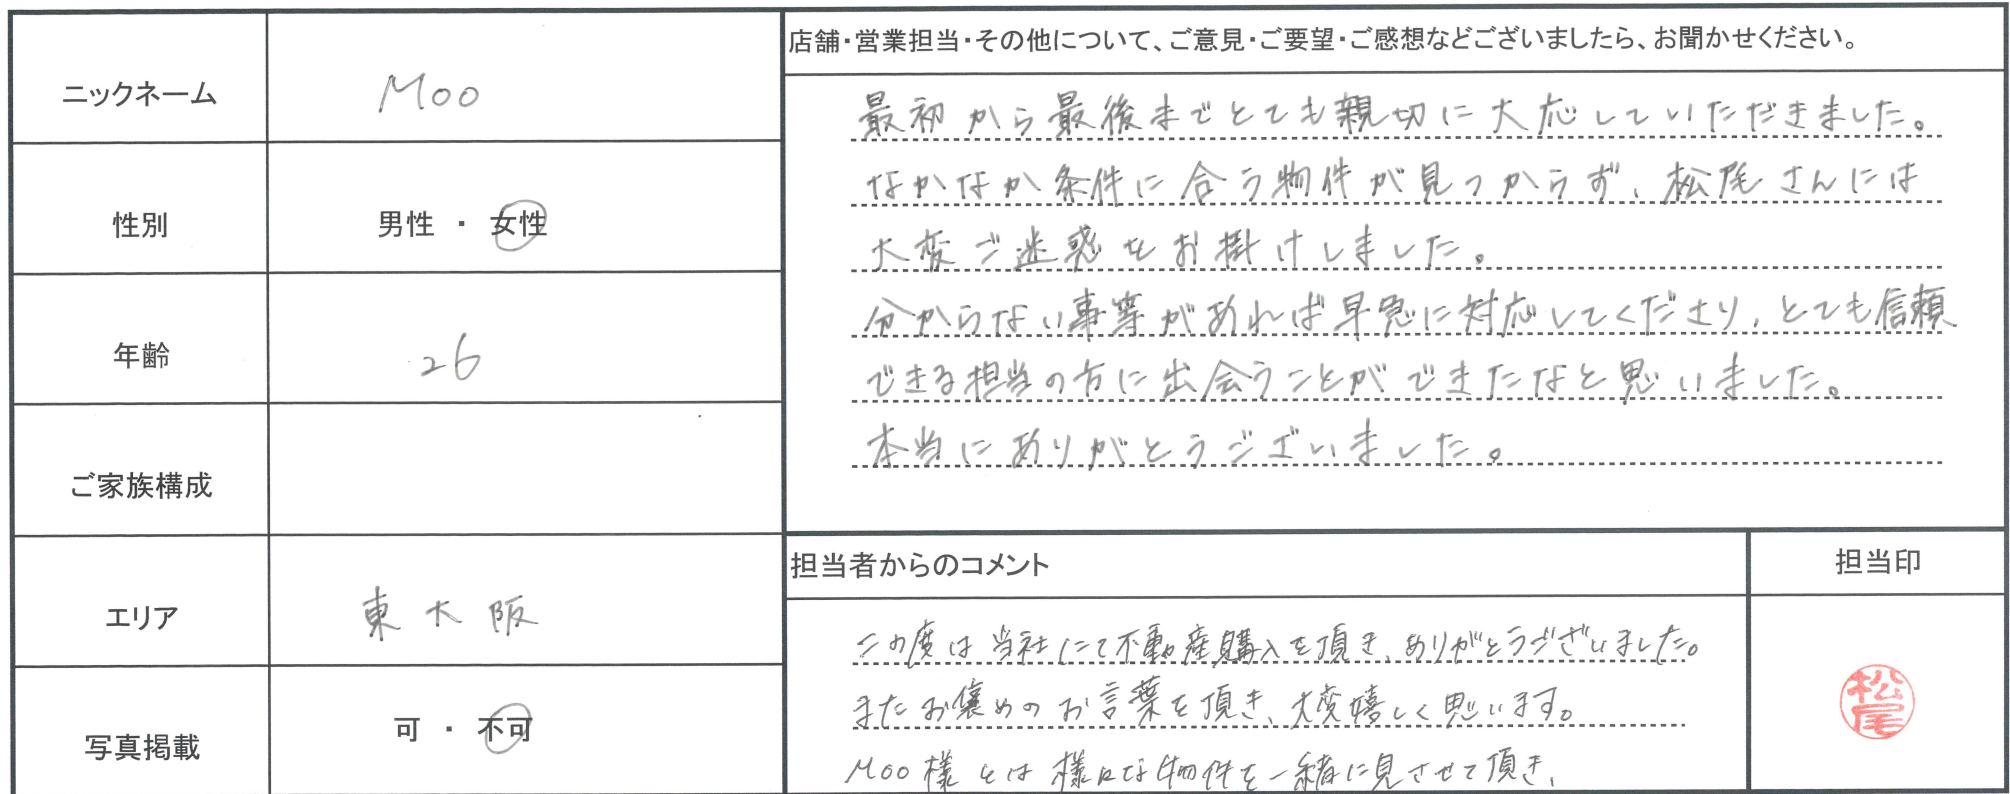 ニックネーム Moo
性別 男性 ・ 女性
年齢 26
ご家族構成
エリア 東大阪
写真掲載 可 ・ 不可
店舗・営業担当・その他について、ご意見・ご要望・ご感想などございましたら、お聞かせください。
最初から最後までとても親切に大応していただきました。
なかなか条件に合う物件が見つからず、松尾さんには
大変ご迷惑をお掛けしました。
分からない事等があれば早急に対応してくださり、とても信頼
できる担当の方に出会うことができたなと思いました。
本当にありがとうございました。
担当者からのコメント
この度は当社にて不動産購入を頂き、ありがとうございました。
またお褒めのお言葉を頂き、大変嬉しく思います。
Moo様とは様々な物件を一緒に見させて頂き、
担当印
松尾